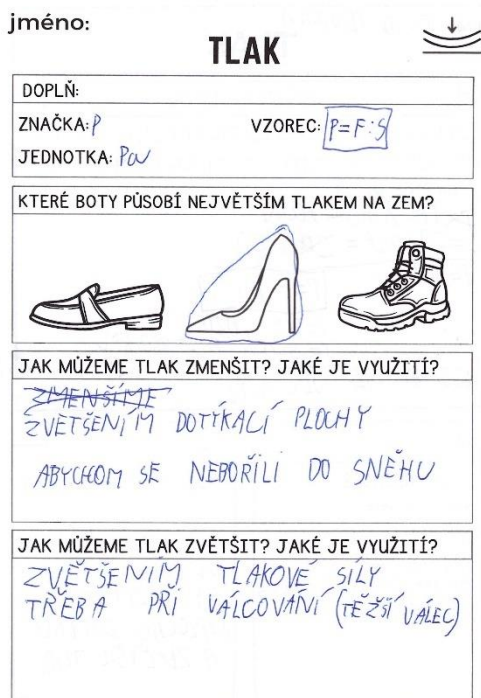 jméno:
TLAK
DOPLŇ:
ZNAČKA: P
VZOREC: P=F:S
JEDNOTKA: Pa
KTERÉ BOTY PŮSOBÍ NEJVĚTŠÍM TLAKEM NA ZEM?
JAK MŮŽEME TLAK ZMENŠIT? JAKÉ JE VYUŽITÍ?
ZMENŠÍME
ZVĚTŠENÍM DOTÝKACÍ PLOCHY
ABYCHOM SE NEBOŘILI DO SNĚHU
JAK MŮŽEME TLAK ZVĚTŠIT? JAKÉ JE VYUŽITÍ?
ZVĚTŠENÍM TLAKOVÉ SÍLY
TŘEBA PŘI VÁLCOVÁNÍ (TĚŽŠÍ VÁLEC)